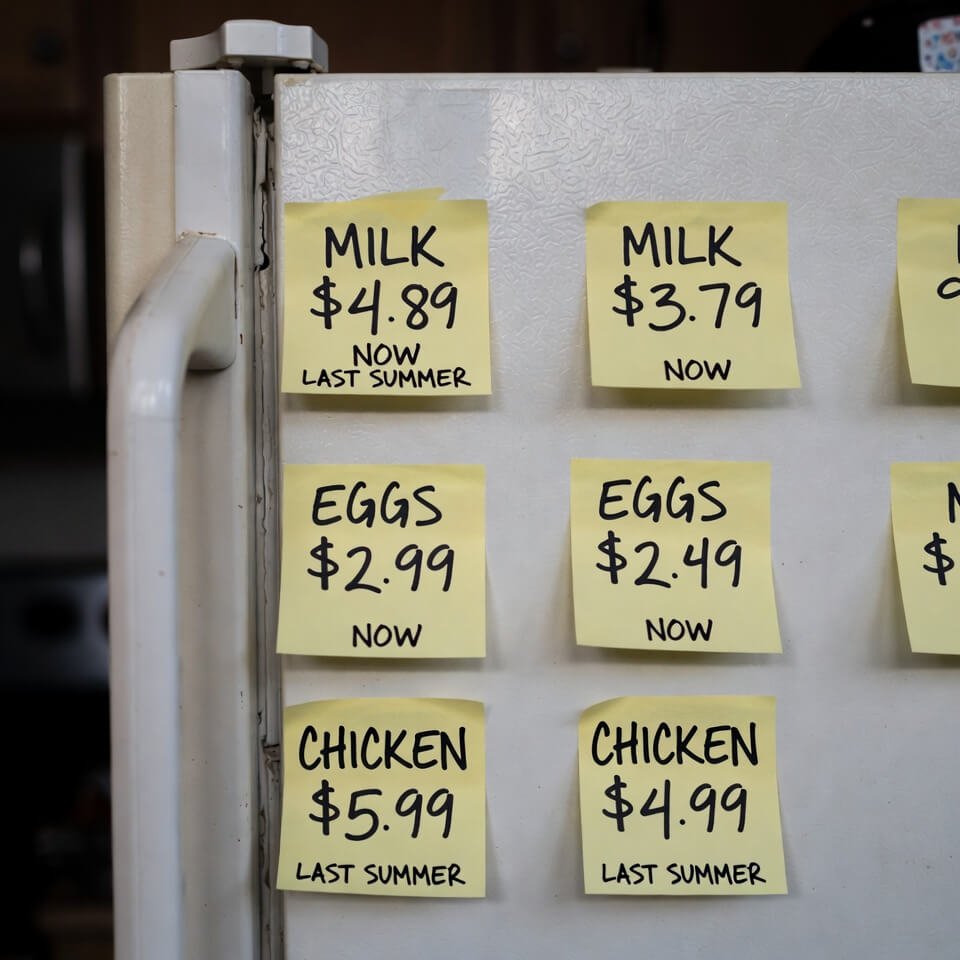 MILK
$4.89
NOW
LAST SUMMER
MILK
$3.79
NOW
EGGS
$2.99
NOW
EGGS
$2.49
NOW
$
CHICKEN
$5.99
LAST SUMMER
CHICKEN
$4.99
LAST SUMMER